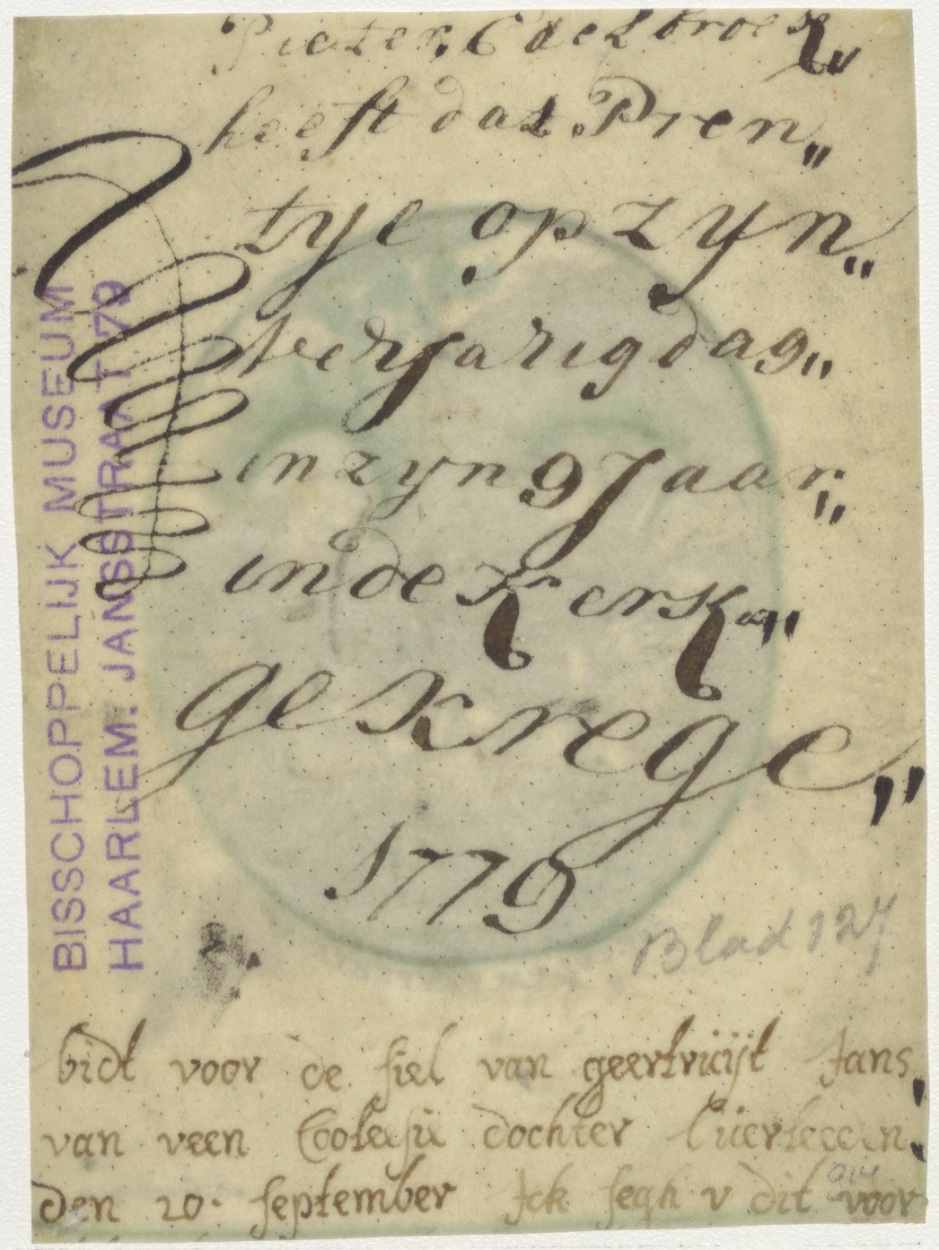 Pieter
heeft dat Pren„
tye op zyn„
Verjarigdag„
in zyn 9 Jaar„
in de Kerk„
gekrege„
1779
Blad 127
bidt voor de siel van geertruijt Jans
van veen dochter
den 20 september Ick segh v dit voor
914
BISSCHOPPELIJK MUSEUM
HAARLEM. JANSSTRAAT 79